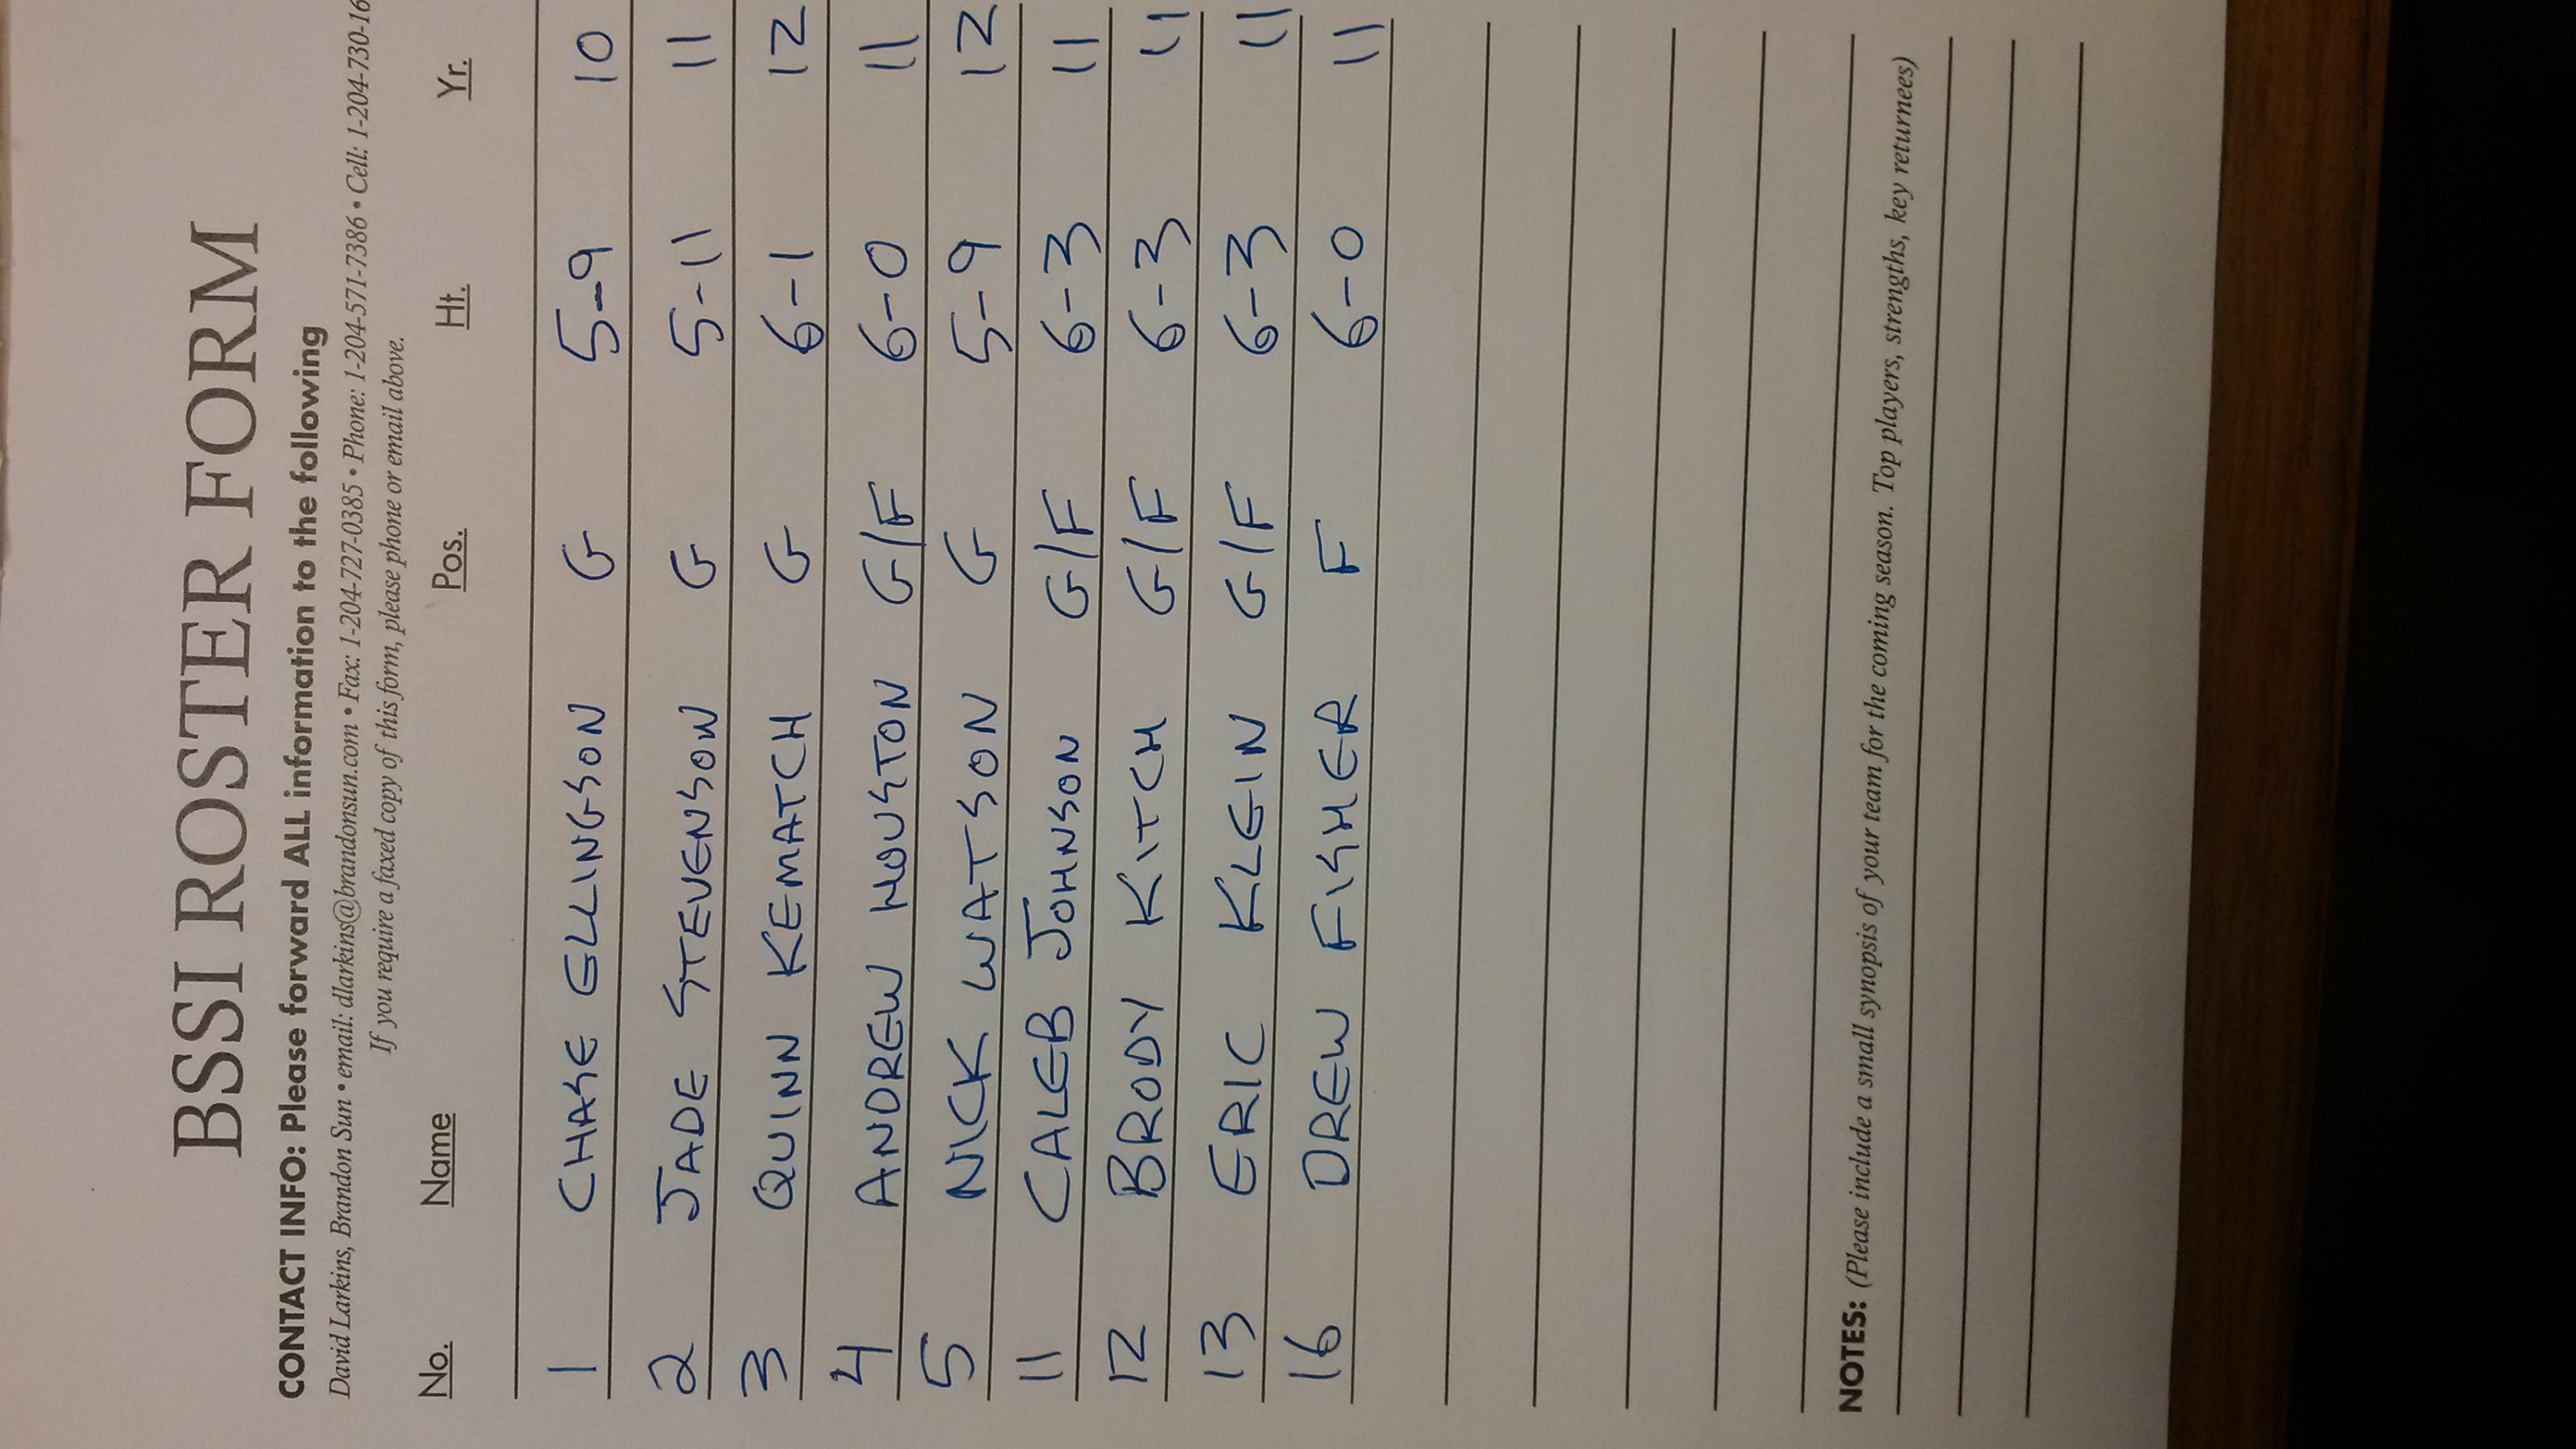 BSSI ROSTER FORM
CONTACT INFO: Please forward ALL information to the following
David Larkins, Brandon Sun • email: dlarkins@brandonsun.com • Fax: 1-204-727-0385 • Phone: 1-204-571-7386 • Cell: 1-204-730-16
If you require a faxed copy of this form, please phone or email above.
No. Name Pos. Ht. Yr.
1 CHASE ELLINGSON G 5-9 10
2 JADE STEVENSON G 5-11 11
3 QUINN KEMATCH G 6-1 12
4 ANDREW HOUSTON G/F 6-0 11
5 NICK WATSON G 5-9 12
11 CALEB JOHNSON G/F 6-3 11
12 BRODY KITCH G/F 6-3 11
13 ERIC KLEIN G/F 6-3 11
16 DREW FISHER F 6-0 11
NOTES: (Please include a small synopsis of your team for the coming season. Top players, strengths, key returnees)